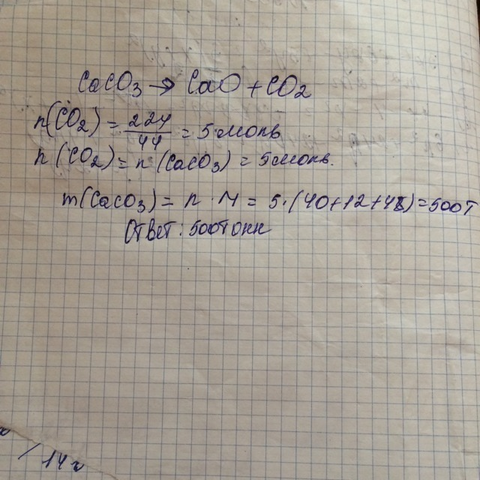 CaCO3 → CaO + CO2
n(CO2) = 224/44 = 5 моль
n(CO2) = n(CaCO3) = 5 моль.
m(CaCO3) = n · M = 5 · (40+12+48) = 500т
Ответ: 500тонн
/ 14